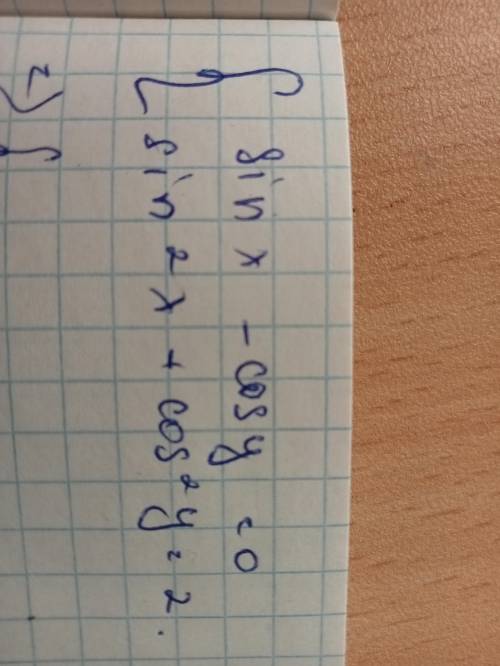 { sin x - cos y = 0
sin² x + cos² y = 2.
2) {